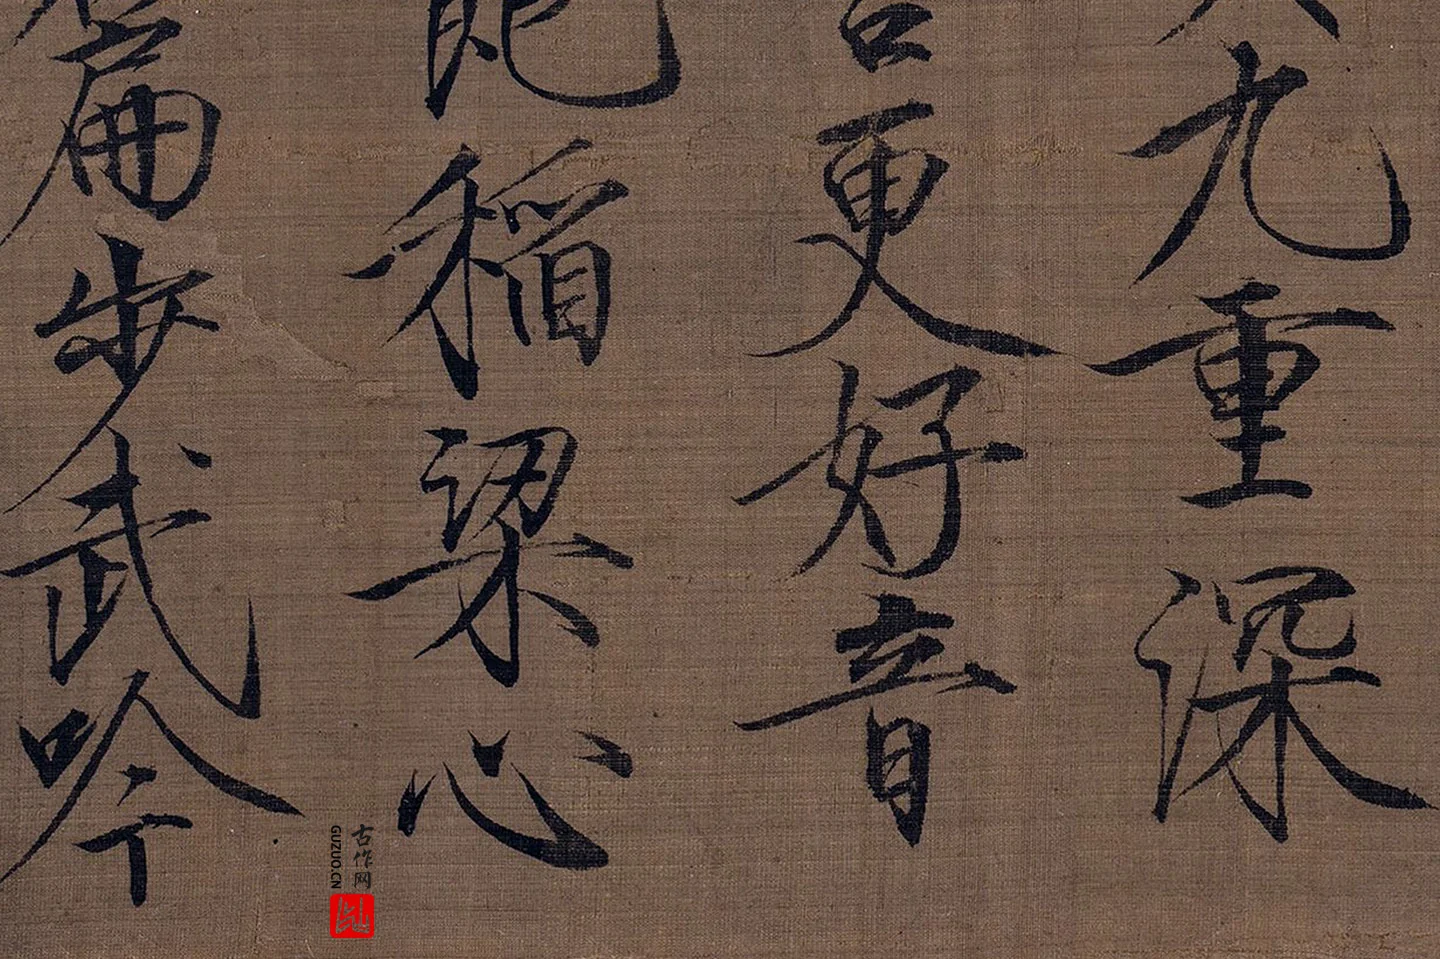 九重深
更好音
稻梁心
步武吟
古作网
GUZUO.CN